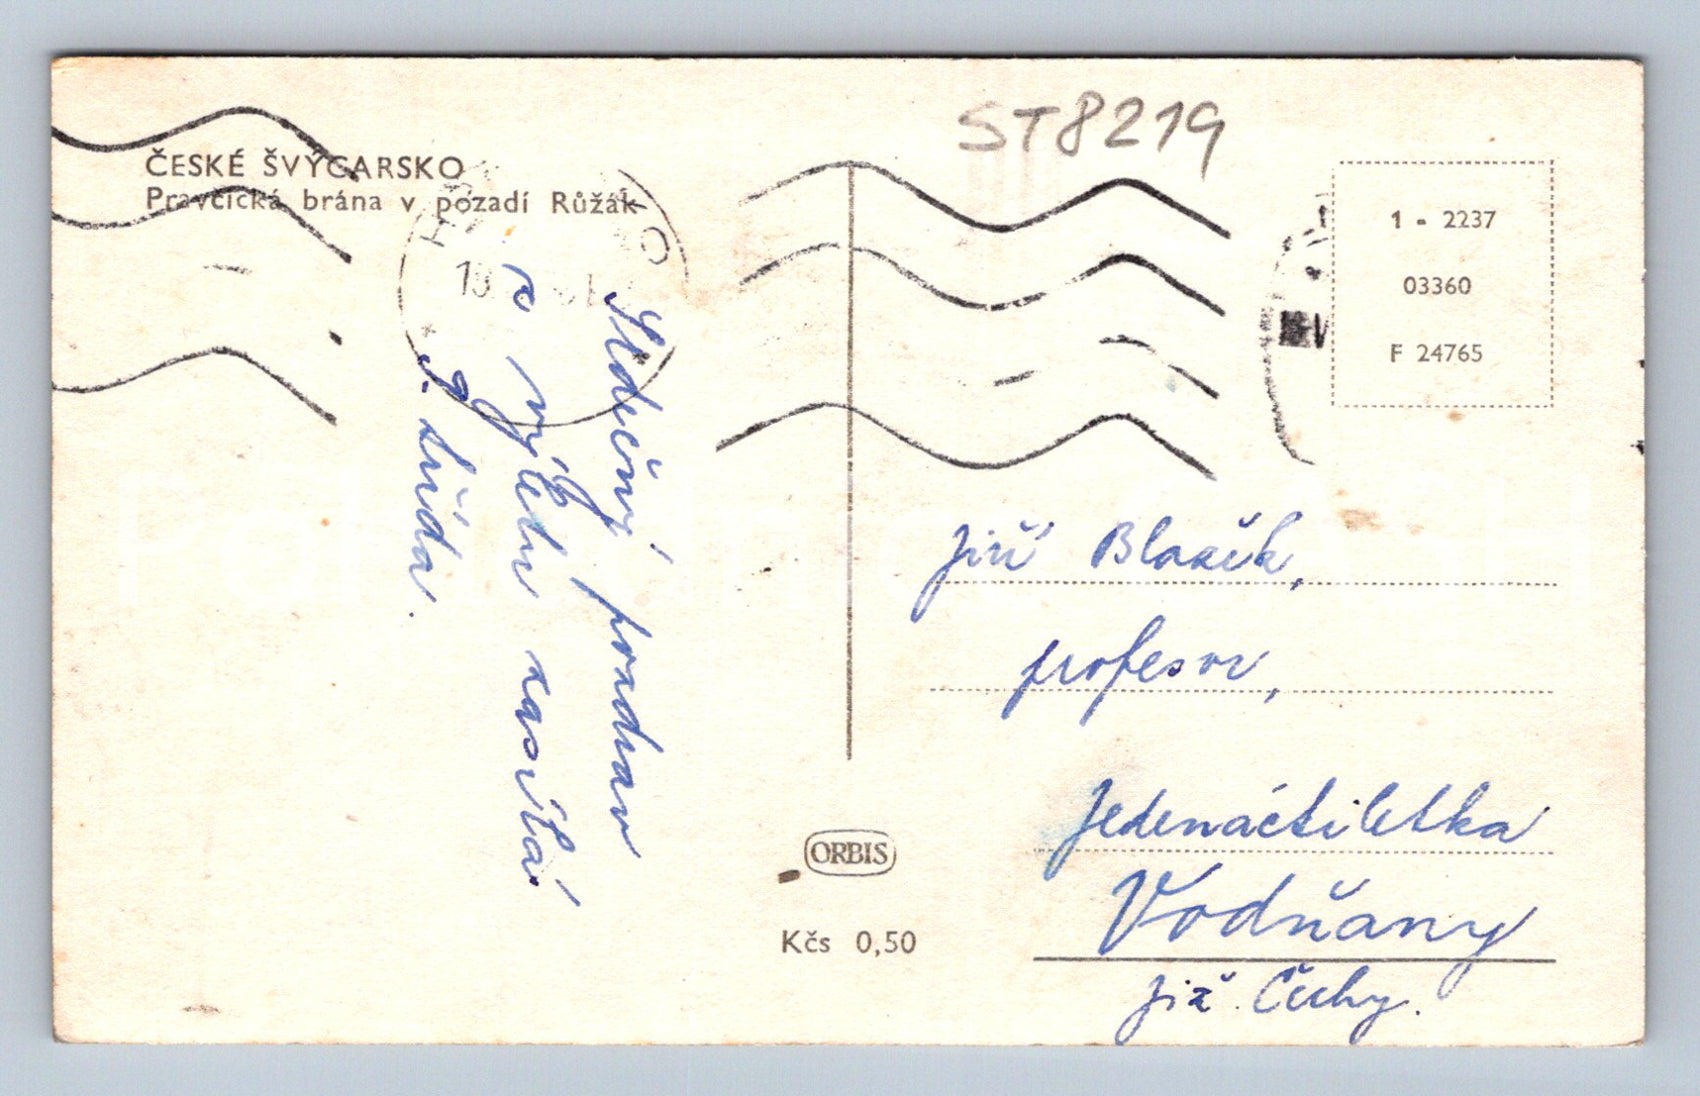 ST8219
ČESKÉ ŠVÝCARSKO
Pravčická brána v pozadí Růžák
1 - 2237
03360
F 24765
Srdečný pozdrav
z výletu zasílá
J. Lída.
Jiří Blažek,
profesor,
Jedenáctiletka
Vodňany
Již. Čechy.
ORBIS
Kčs 0,50